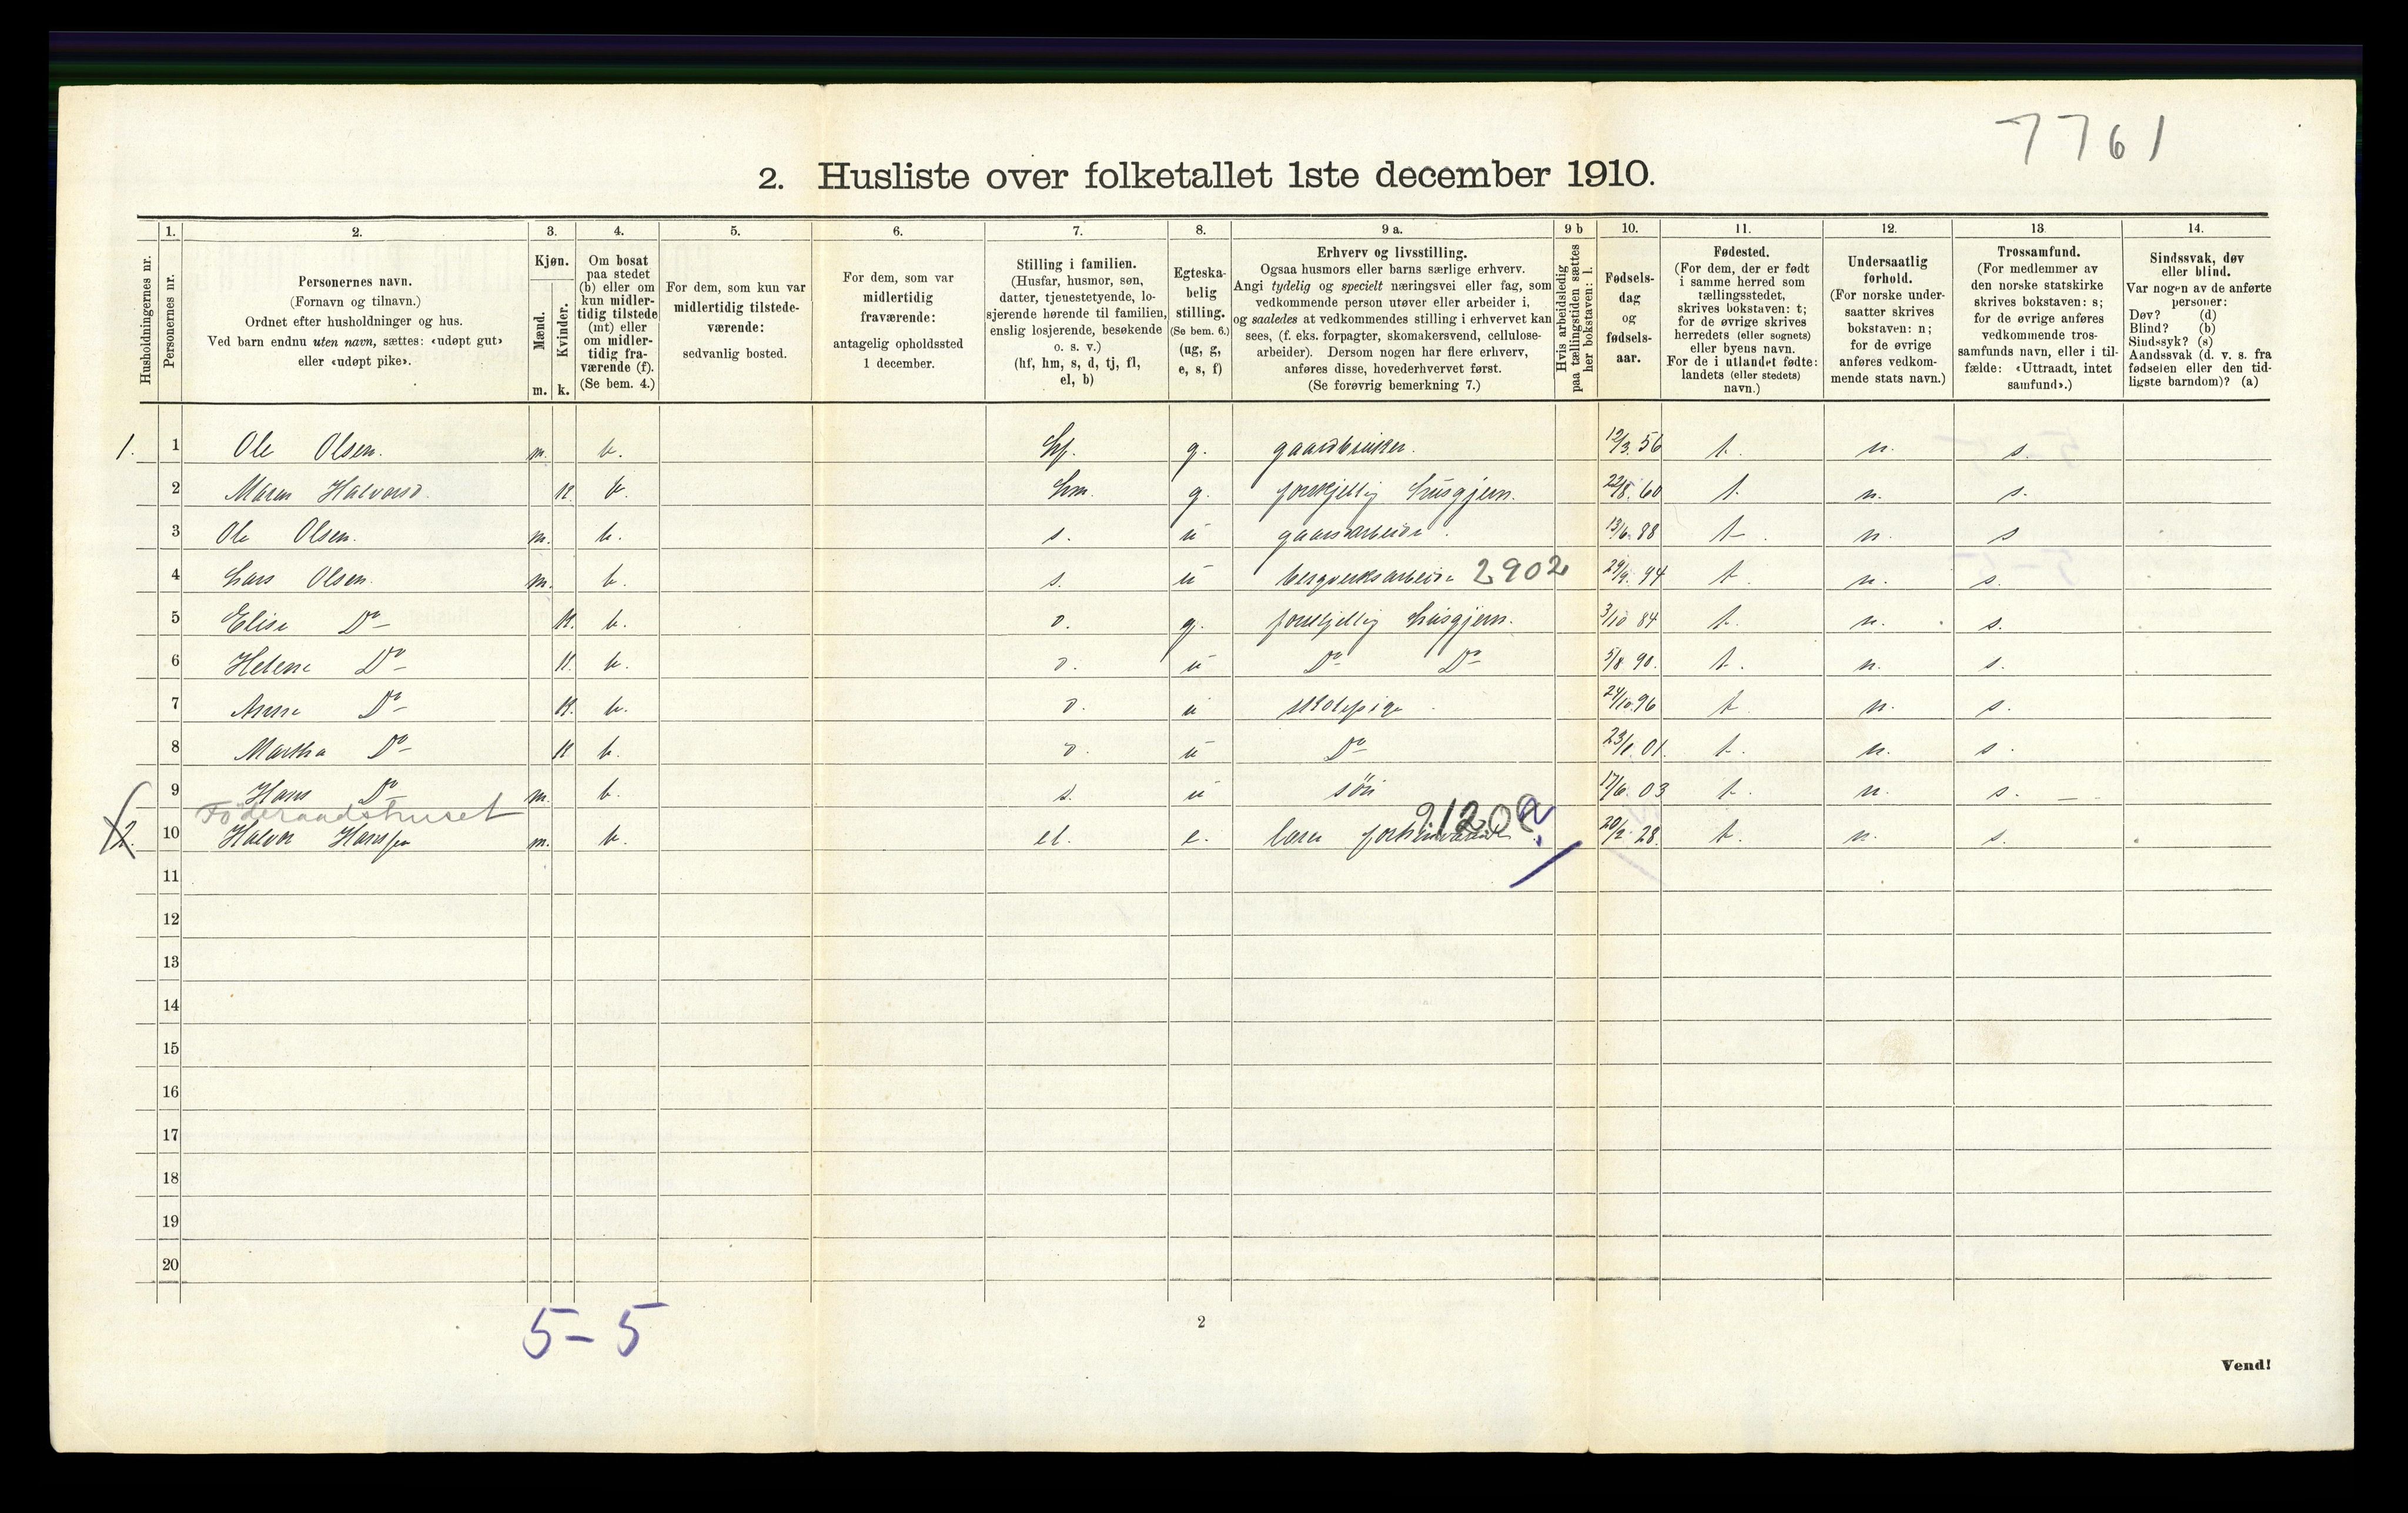 7761
2. Husliste over folketallet 1ste december 1910.
Husholdningernes nr.
1.
Personernes nr.
2.
Personernes navn.
(Fornavn og tilnavn.)
Ordnet efter husholdninger og hus.
Ved barn endnu uten navn, sættes: «udøpt gut»
eller «udøpt pike».
3.
Kjøn.
Mænd.
Kvinder.
m. k.
4.
Om bosat
paa stedet
(b) eller om
kun midler-
tidig tilstede
(mt) eller
om midler-
tidig fra-
værende (f).
(Se bem. 4.)
5.
For dem, som kun var
midlertidig tilstede-
værende:
sedvanlig bosted.
6.
For dem, som var
midlertidig
fraværende:
antagelig opholdssted
1 december.
7.
Stilling i familien.
(Husfar, husmor, søn,
datter, tjenestetyende, lo-
sjerende hørende til familien,
enslig losjerende, besøkende
o. s. v.)
(hf, hm, s, d, tj, fl,
el, b)
8.
Egteska-
belig
stilling.
(Se bem. 6.)
(ug, g,
e, s, f)
9 a.
Erhverv og livsstilling.
Ogsaa husmors eller barns særlige erhverv.
Angi tydelig og specielt næringsvei eller fag, som
vedkommende person utøver eller arbeider i,
og saaledes at vedkommendes stilling i erhvervet kan
sees, (f. eks. forpagter, skomakersvend, cellulose-
arbeider). Dersom nogen har flere erhverv,
anføres disse, hovederhvervet først.
(Se forøvrig bemerkning 7.)
9 b
Hvis arbeidsledig
paa tællingstiden sættes
her bokstaven: l.
10.
Fødsels-
dag
og
fødsels-
aar.
11.
Fødested.
(For dem, der er født
i samme herred som
tællingsstedet,
skrives bokstaven: t;
for de øvrige skrives
herredets (eller sognets)
eller byens navn.
For de i utlandet fødte:
landets (eller stedets)
navn.)
12.
Undersaatlig
forhold.
(For norske under-
saatter skrives
bokstaven: n;
for de øvrige
anføres vedkom-
mende stats navn.)
13
Trossamfund.
(For medlemmer av
den norske statskirke
skrives bokstaven: s;
for de øvrige anføres
vedkommende tros-
samfunds navn, eller i til-
fælde: «Uttraadt, intet
samfund».)
14.
Sindssvak, døv
eller blind.
Var nogen av de anførte
personer:
Døv? (d)
Blind? (b)
Sindssyk? (s)
Aandssvak (d. v. s. fra
fødselen eller den tid-
ligste barndom)? (a)
1. 1 Ole Olsen. m. b. hf. g. gaardbruker. 12/3. 56 t. n. s.
2 Maren Halversd. k. b. hm. g. forskjellig husgjern. 22/8. 60 t. n. s.
3 Ole Olsen. m. b. s. u gaardarbeide. 13/6. 88 t. n. s
4 Lars Olsen. m. b. s. u bergverksarbeide 2902 29/9. 94 t. n. s.
5 Elise Do k. b. d. g. forskjellig husgjern. 3/10 84 t. n. s.
6 Helene Do k. b. d. u Do Do 5/8 90. t. n. s.
7 Anne Do k. b. d. u skolepige 24/10. 96 t. n. s.
8 Martha Do k b. d. u Do 23/1. 01. t. n. s.
9 Hans Do m. b. s. u søn 17/6. 03 t. n. s.
Føderaadshuset
2. 10 Halvor Hanssen m. b. el. e. 91202 20/2. 28. t. n. s.
11
12
13
14
15
16
17
18
19
20
5 - 5
2
Vend!